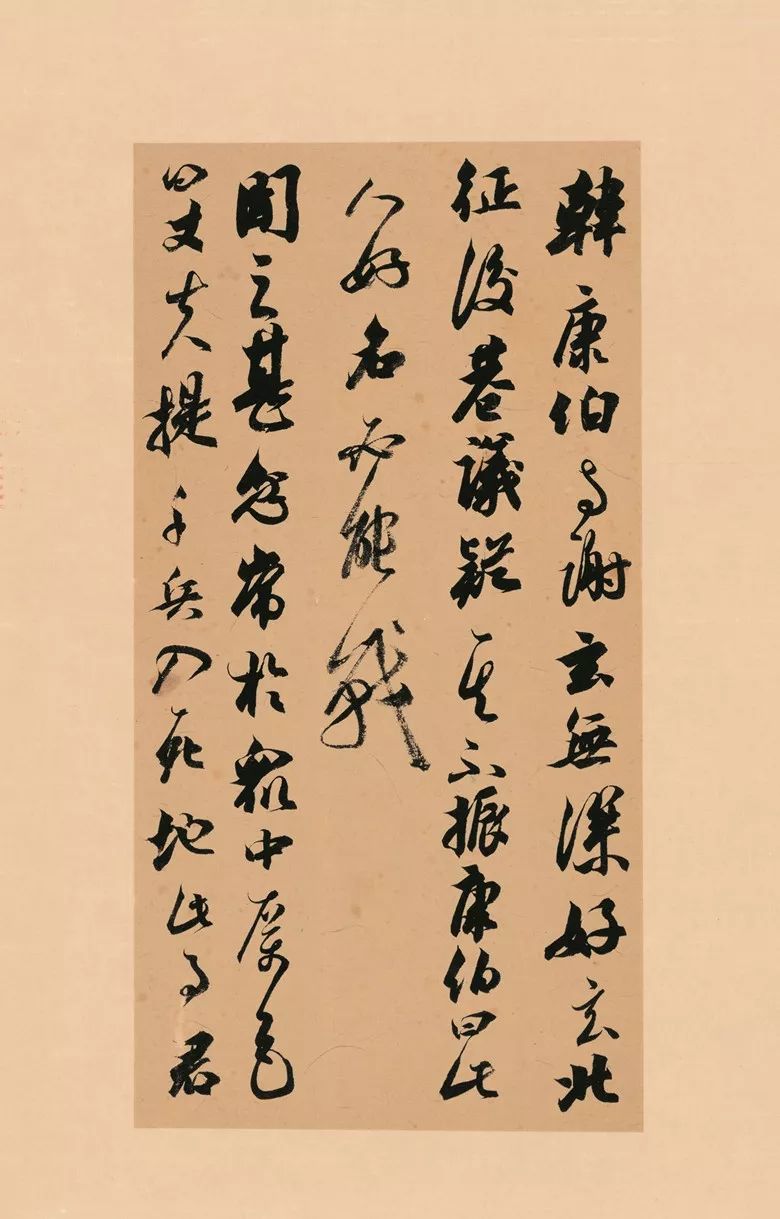 韓康伯与謝玄無深好玄北
征後巷議疑其不振康伯曰此
人好名必能戰
聞之甚忿常於衆中厲色
曰丈夫提千兵入死地此事君